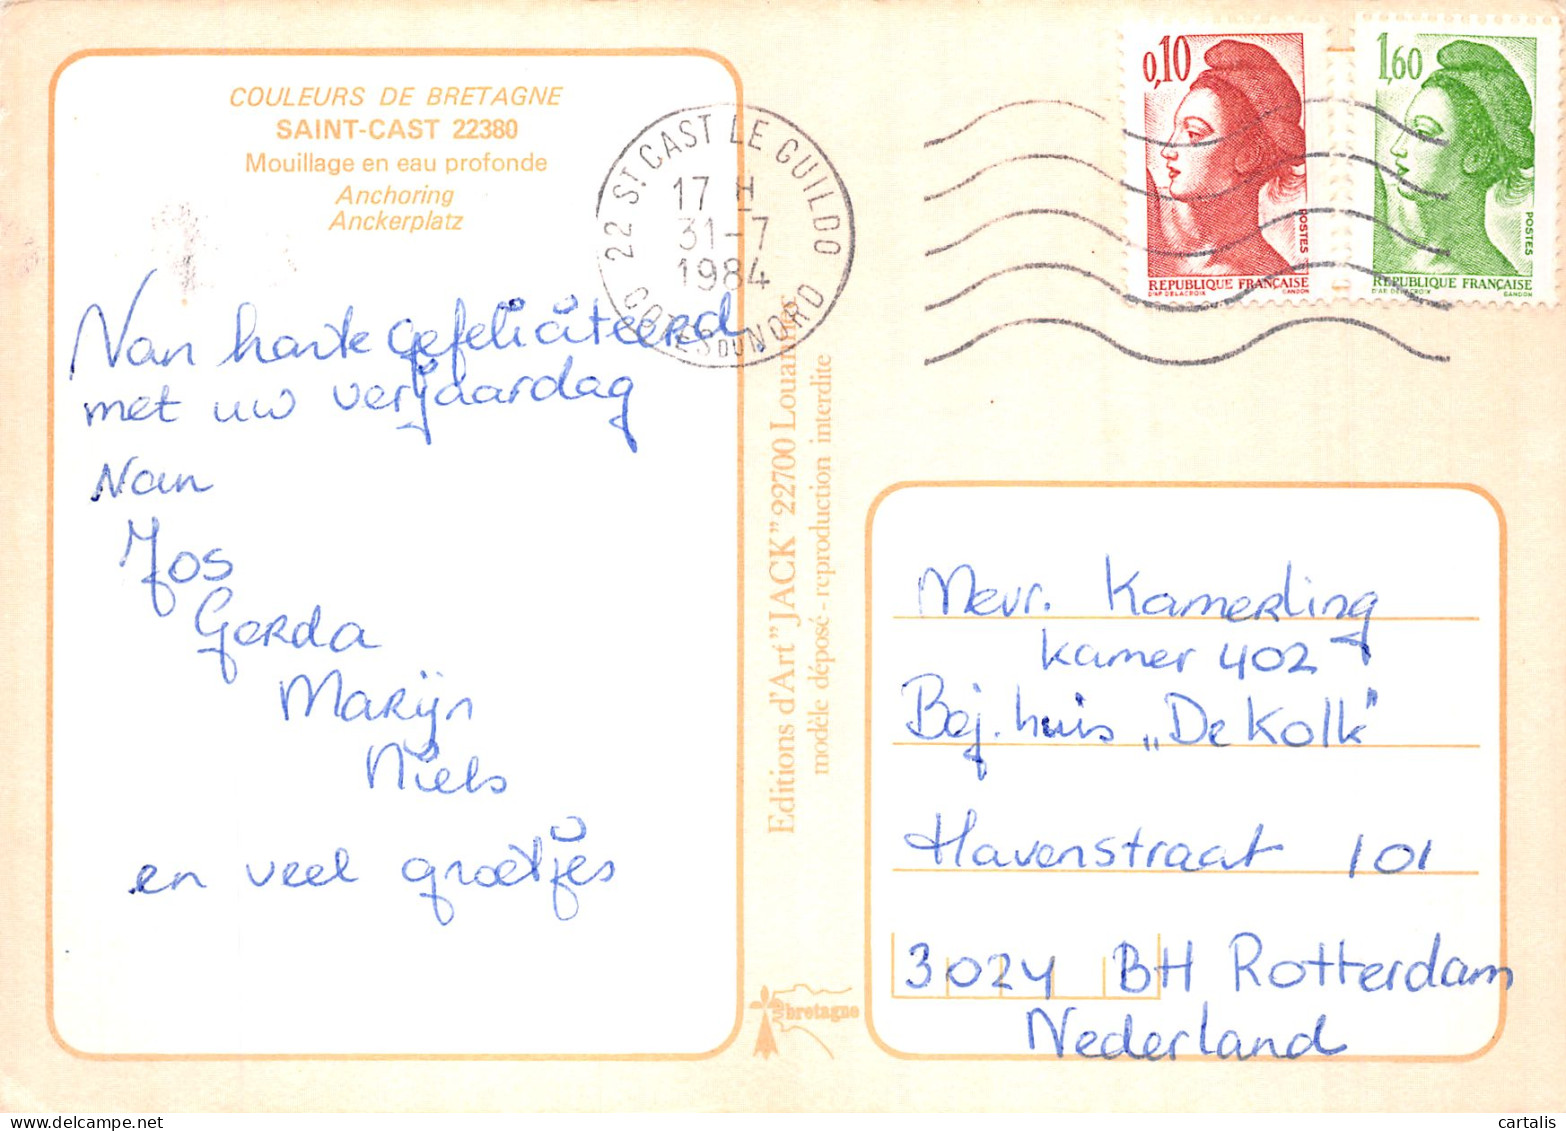 COULEURS DE BRETAGNE
SAINT-CAST 22380
Mouillage en eau profonde
Anchoring
Anckerplatz
Van harte gefeliciteerd
met uw verjaardag
Van
Jos
Gerda
Marijn
Niels
en veel groetjes
22 ST CAST LE GUILDO
17 H
31-7
1984
COTES DU NORD
Editions d'Art "JACK" 22700 Louannec
modèle déposé - reproduction interdite
bretagne
0,10
POSTES
REPUBLIQUE FRANÇAISE
D'AP DELACROIX GANDON
1,60
POSTES
REPUBLIQUE FRANÇAISE
D'AP DELACROIX GANDON
Mevr. Kamerling
kamer 402
Bej. huis „De Kolk"
Havenstraat 101
3024 BH Rotterdam
Nederland
cartalis